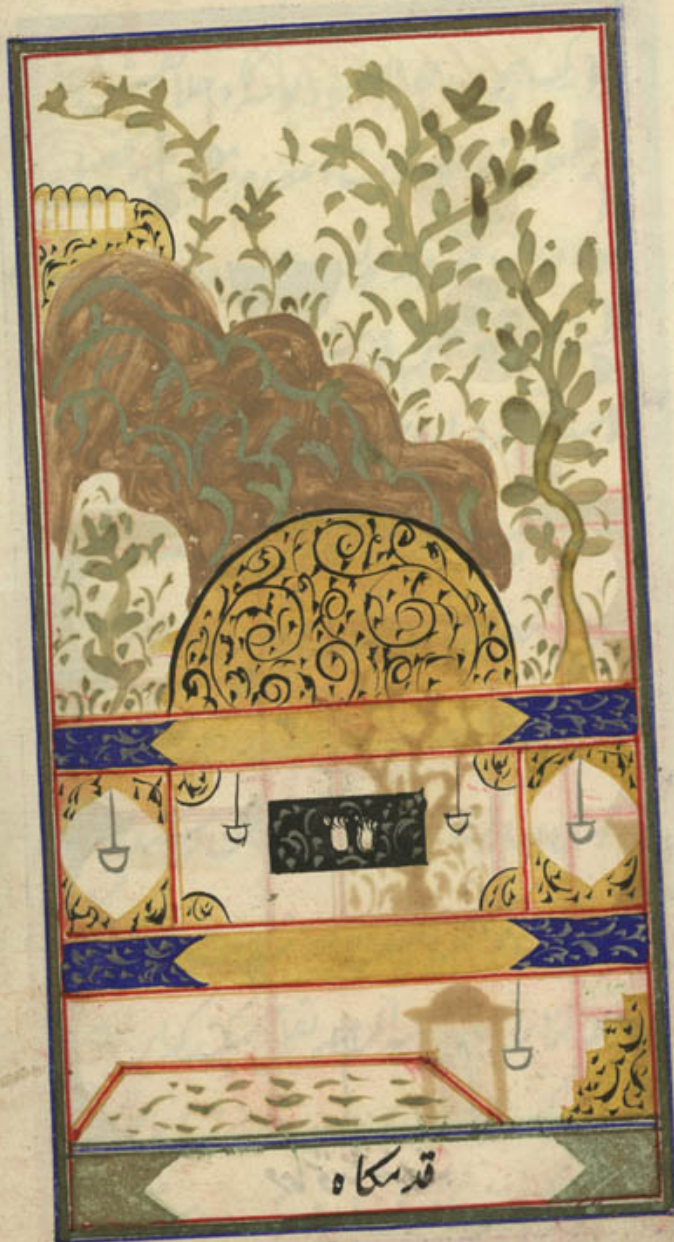 قدمکاه